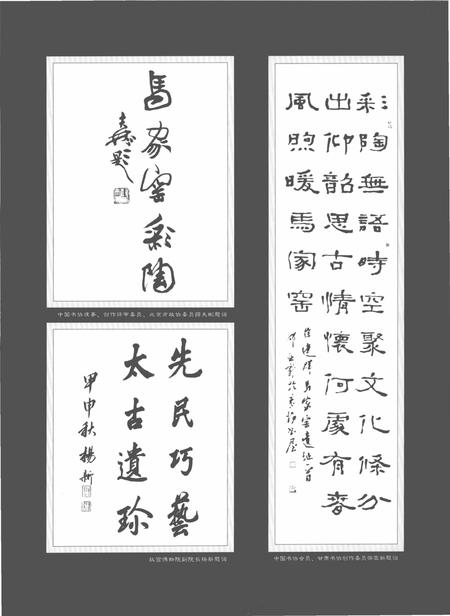 馬家窑彩陶
题
中国书协理事、创作评审委员、北京市政协委员薛夫彬题词
先民巧藝
太古遺珍
甲申秋楊新
故宫博物院副院长杨新题词
彩陶無語時空聚文化條分
出仰韶思古情懷何處有春
風煦暖馬家窑
中国书协会员、甘肃书协创作委员